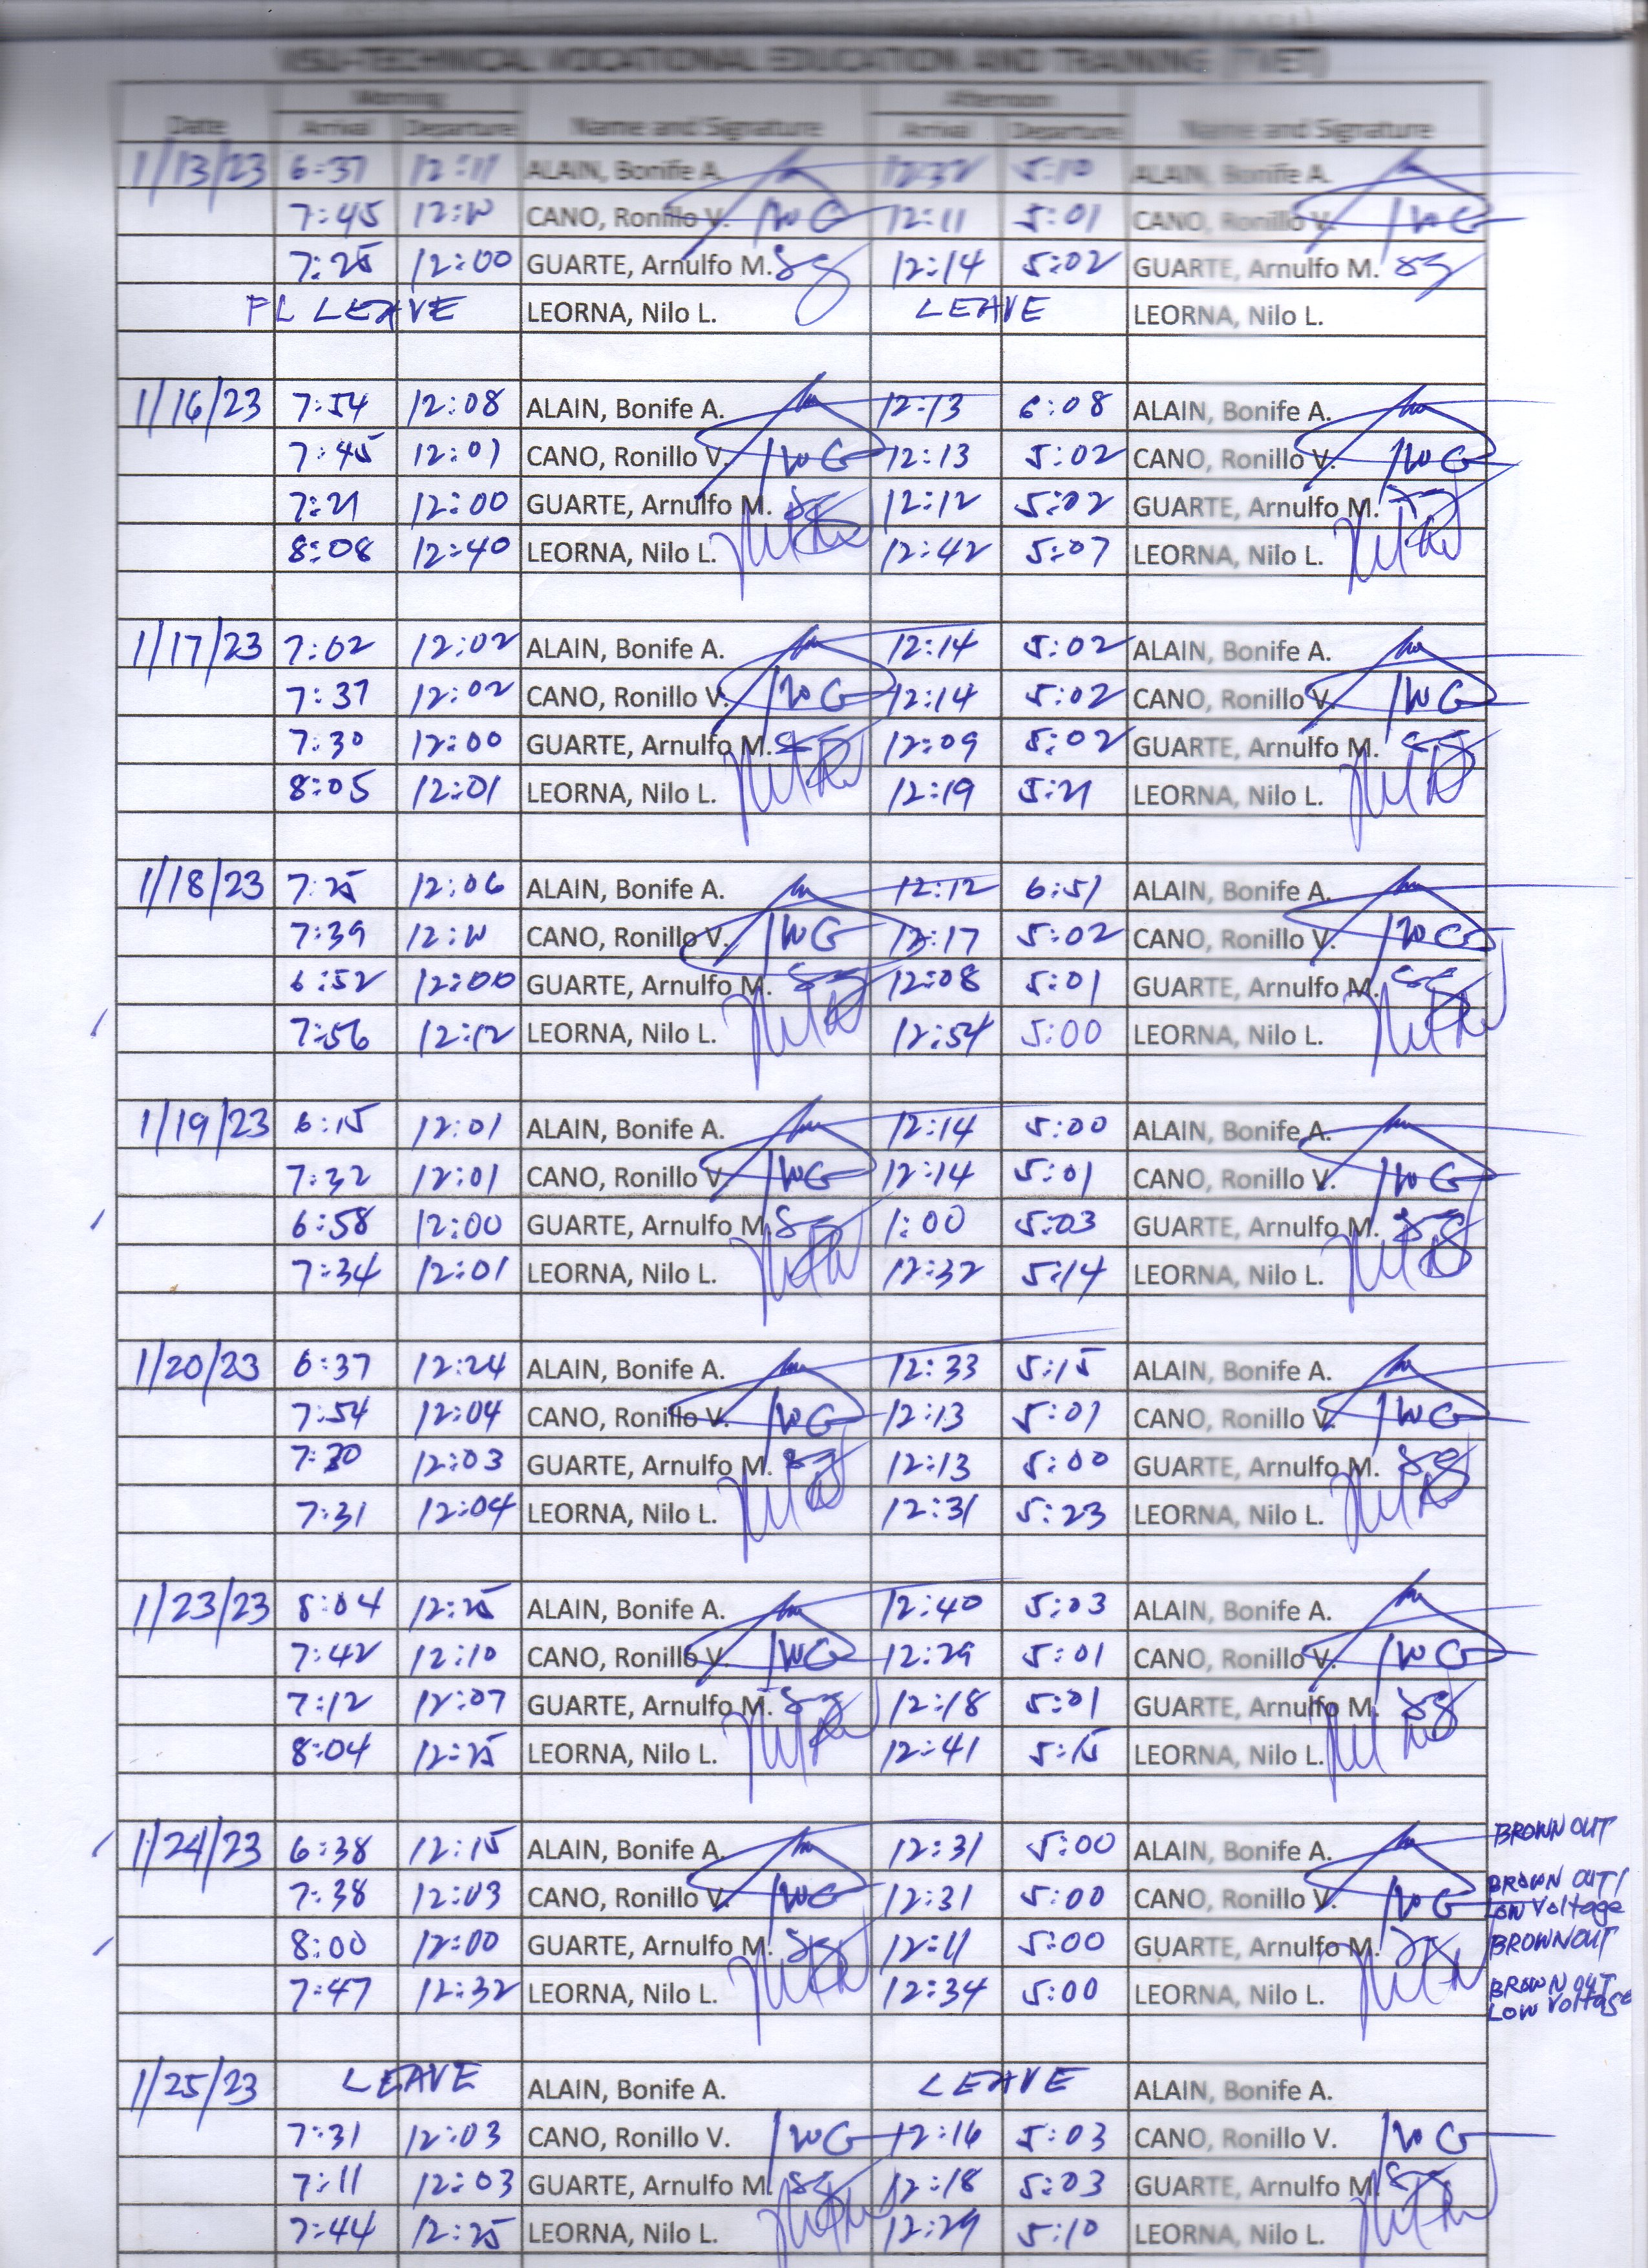 VSU-TECHNICAL VOCATIONAL EDUCATION AND TRAINING (TVET)
Morning Afternoon
Date Arrival Departure Name and Signature Arrival Departure Name and Signature
1/13/23 6:37 12:11 ALAIN, Bonife A. 12:32 5:10 ALAIN, Bonife A.
7:45 CANO, Ronillo V. 12:11 5:01 CANO, Ronillo V.
7:25 12:00 GUARTE, Arnulfo M. 12:14 5:02 GUARTE, Arnulfo M.
FL LEAVE LEORNA, Nilo L. LEAVE LEORNA, Nilo L.
1/16/23 7:54 12:08 ALAIN, Bonife A. 12:13 6:08 ALAIN, Bonife A.
7:45 12:01 CANO, Ronillo V. 12:13 5:02 CANO, Ronillo V.
7:21 12:00 GUARTE, Arnulfo M. 12:12 5:02 GUARTE, Arnulfo M.
8:08 12:40 LEORNA, Nilo L. 12:42 5:07 LEORNA, Nilo L.
1/17/23 7:02 12:02 ALAIN, Bonife A. 12:14 5:02 ALAIN, Bonife A.
7:37 12:02 CANO, Ronillo V. 12:14 5:02 CANO, Ronillo V.
7:30 12:00 GUARTE, Arnulfo M. 12:09 5:02 GUARTE, Arnulfo M.
8:05 12:01 LEORNA, Nilo L. 12:19 5:21 LEORNA, Nilo L.
1/18/23 7:25 12:06 ALAIN, Bonife A. 12:12 6:51 ALAIN, Bonife A.
7:39 CANO, Ronillo V. 12:17 5:02 CANO, Ronillo V.
6:52 12:00 GUARTE, Arnulfo M. 12:08 5:01 GUARTE, Arnulfo M.
7:56 12:12 LEORNA, Nilo L. 12:54 5:00 LEORNA, Nilo L.
1/19/23 6:15 12:01 ALAIN, Bonife A. 12:14 5:00 ALAIN, Bonife A.
7:32 12:01 CANO, Ronillo V. 12:14 5:01 CANO, Ronillo V.
6:58 12:00 GUARTE, Arnulfo M. 1:00 5:03 GUARTE, Arnulfo M.
7:34 12:01 LEORNA, Nilo L. 12:32 5:14 LEORNA, Nilo L.
1/20/23 6:37 12:24 ALAIN, Bonife A. 12:33 5:15 ALAIN, Bonife A.
7:54 12:04 CANO, Ronillo V. 12:13 5:01 CANO, Ronillo V.
12:03 GUARTE, Arnulfo M. 12:13 5:00 GUARTE, Arnulfo M.
7:31 12:04 LEORNA, Nilo L. 12:31 5:23 LEORNA, Nilo L.
1/23/23 8:04 12:25 ALAIN, Bonife A. 12:40 5:03 ALAIN, Bonife A.
7:42 12:10 CANO, Ronillo V. 12:29 5:01 CANO, Ronillo V.
7:12 12:07 GUARTE, Arnulfo M. 12:18 5:01 GUARTE, Arnulfo M.
8:04 12:25 LEORNA, Nilo L. 12:41 5:15 LEORNA, Nilo L.
1/24/23 6:38 12:15 ALAIN, Bonife A. 12:31 5:00 ALAIN, Bonife A. BROWN OUT
7:38 12:03 CANO, Ronillo V. 12:31 5:00 CANO, Ronillo V. BROWN OUT/
Low Voltage
8:00 12:00 GUARTE, Arnulfo M. 12:11 5:00 GUARTE, Arnulfo M. BROWNOUT
7:47 12:32 LEORNA, Nilo L. 12:34 5:00 LEORNA, Nilo L. BROWN OUT
Low Voltage
1/25/23 LEAVE ALAIN, Bonife A. LEAVE ALAIN, Bonife A.
7:31 12:03 CANO, Ronillo V. 12:16 5:03 CANO, Ronillo V.
7:11 12:03 GUARTE, Arnulfo M. 12:18 5:03 GUARTE, Arnulfo M.
7:44 12:25 LEORNA, Nilo L. 12:29 5:10 LEORNA, Nilo L.